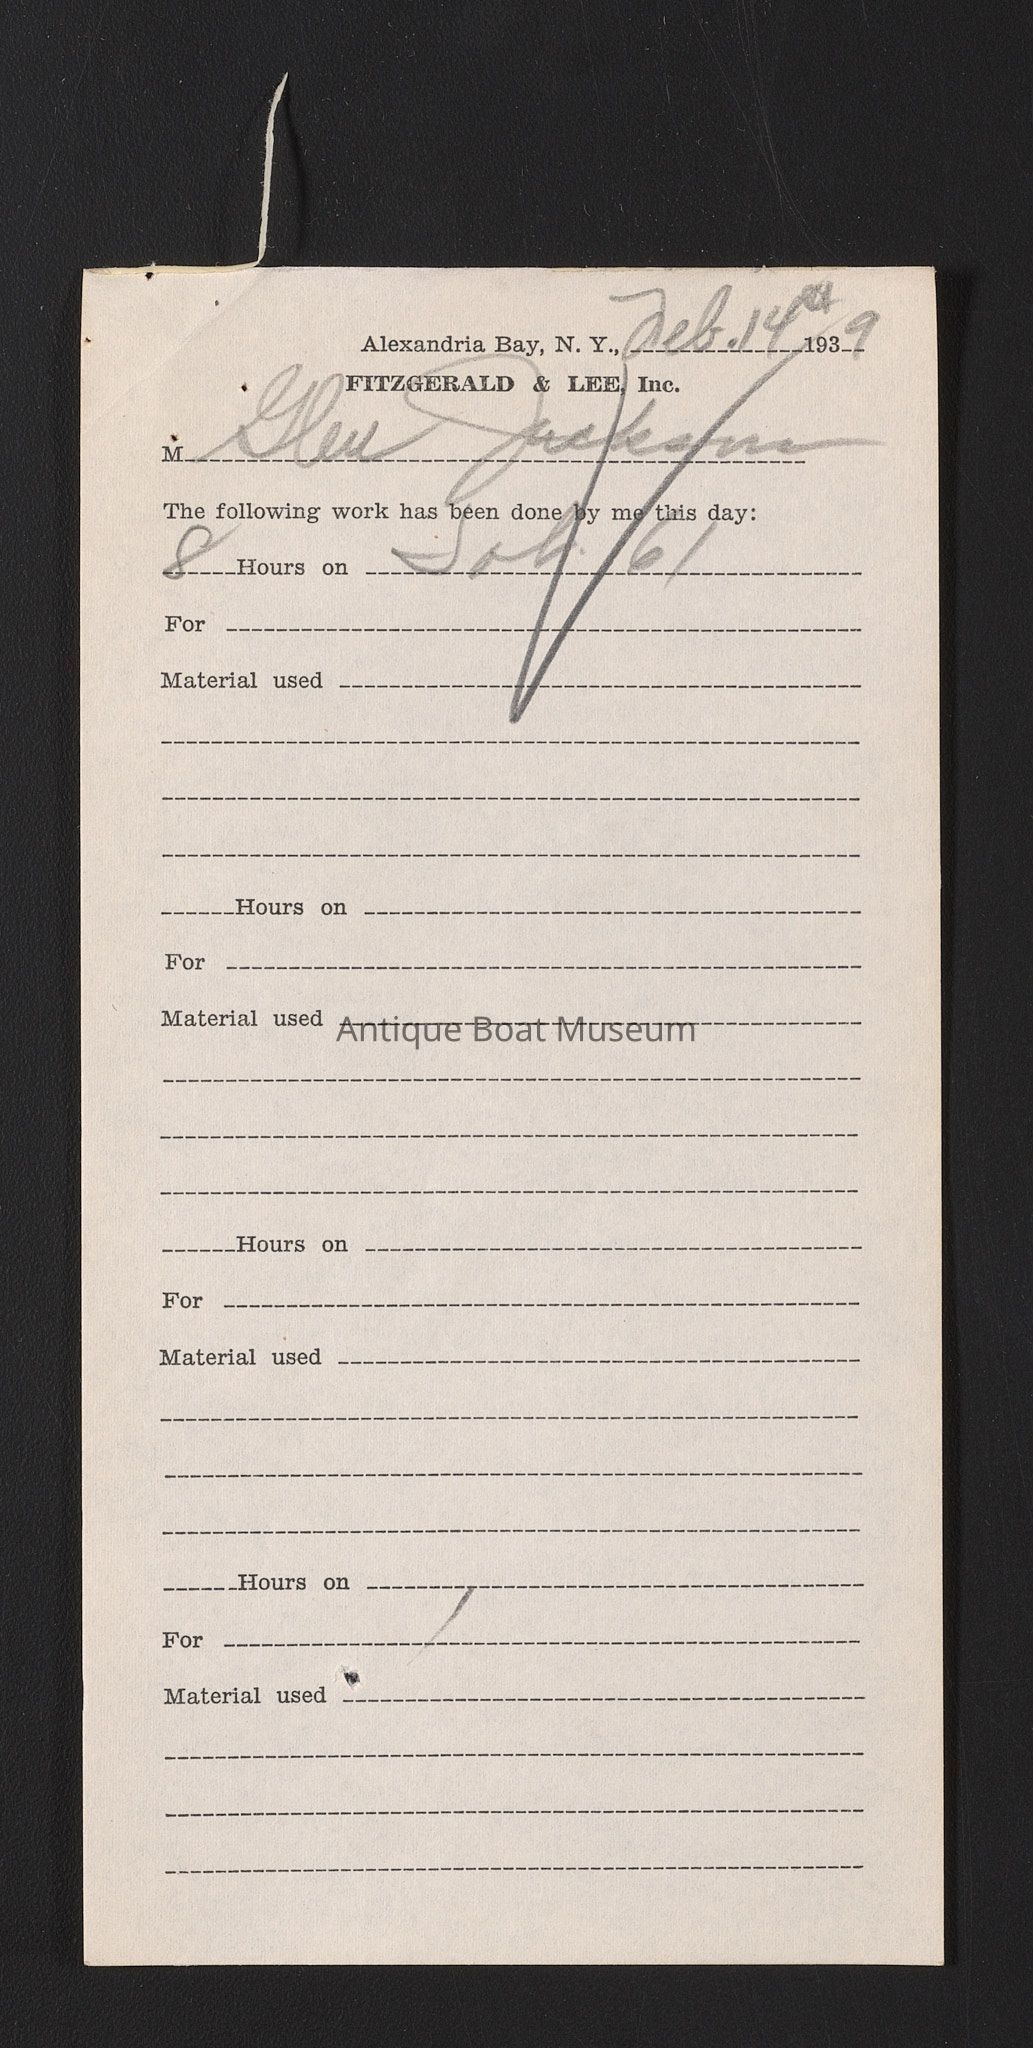 Alexandria Bay, N. Y., Feb. 14th 1939
FITZGERALD & LEE, Inc.
M Glen Jackson
The following work has been done by me this day:
8 Hours on Job 61
For
Material used
Hours on
For
Material used
Antique Boat Museum
Hours on
For
Material used
Hours on
For
Material used